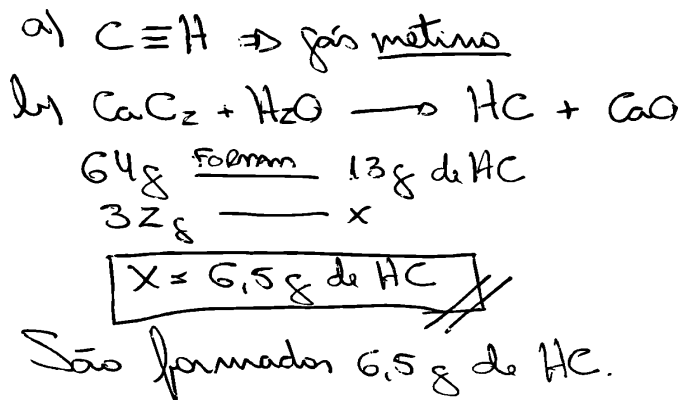 a) C≡H ⇒ gás metino
b) CaC2 + H2O ⟶ HC + CaO
64g FORMAM 13g de HC
32g —— x
X = 6,5 g de HC
São formados 6,5 g de HC.